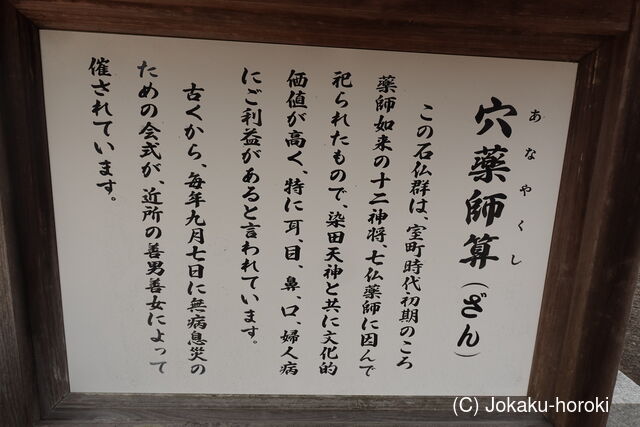 穴薬師算(ざん)
あなやくし
この石仏群は、室町時代初期のころ
薬師如来の十二神将、七仏薬師に因んで
祀られたもので、染田天神と共に文化的
価値が高く、特に耳、目、鼻、口、婦人病
にご利益があると言われています。
古くから、毎年九月七日に無病息災の
ための会式が、近所の善男善女によって
催されています。
(C) Jokaku-horoki